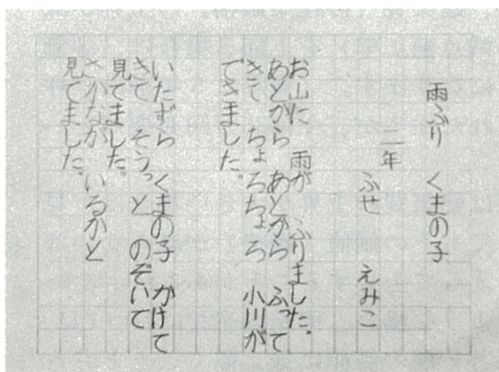 雨ふり くまの子
二年
ふせ えみこ
お山に 雨が ふりました。
あとから あとから ふって
きて ちょろちょろ 小川が
できました。
いたずら くまの子 かけて
きて そうっと のぞいて
見てました。
さかなが いるかと
見てました。